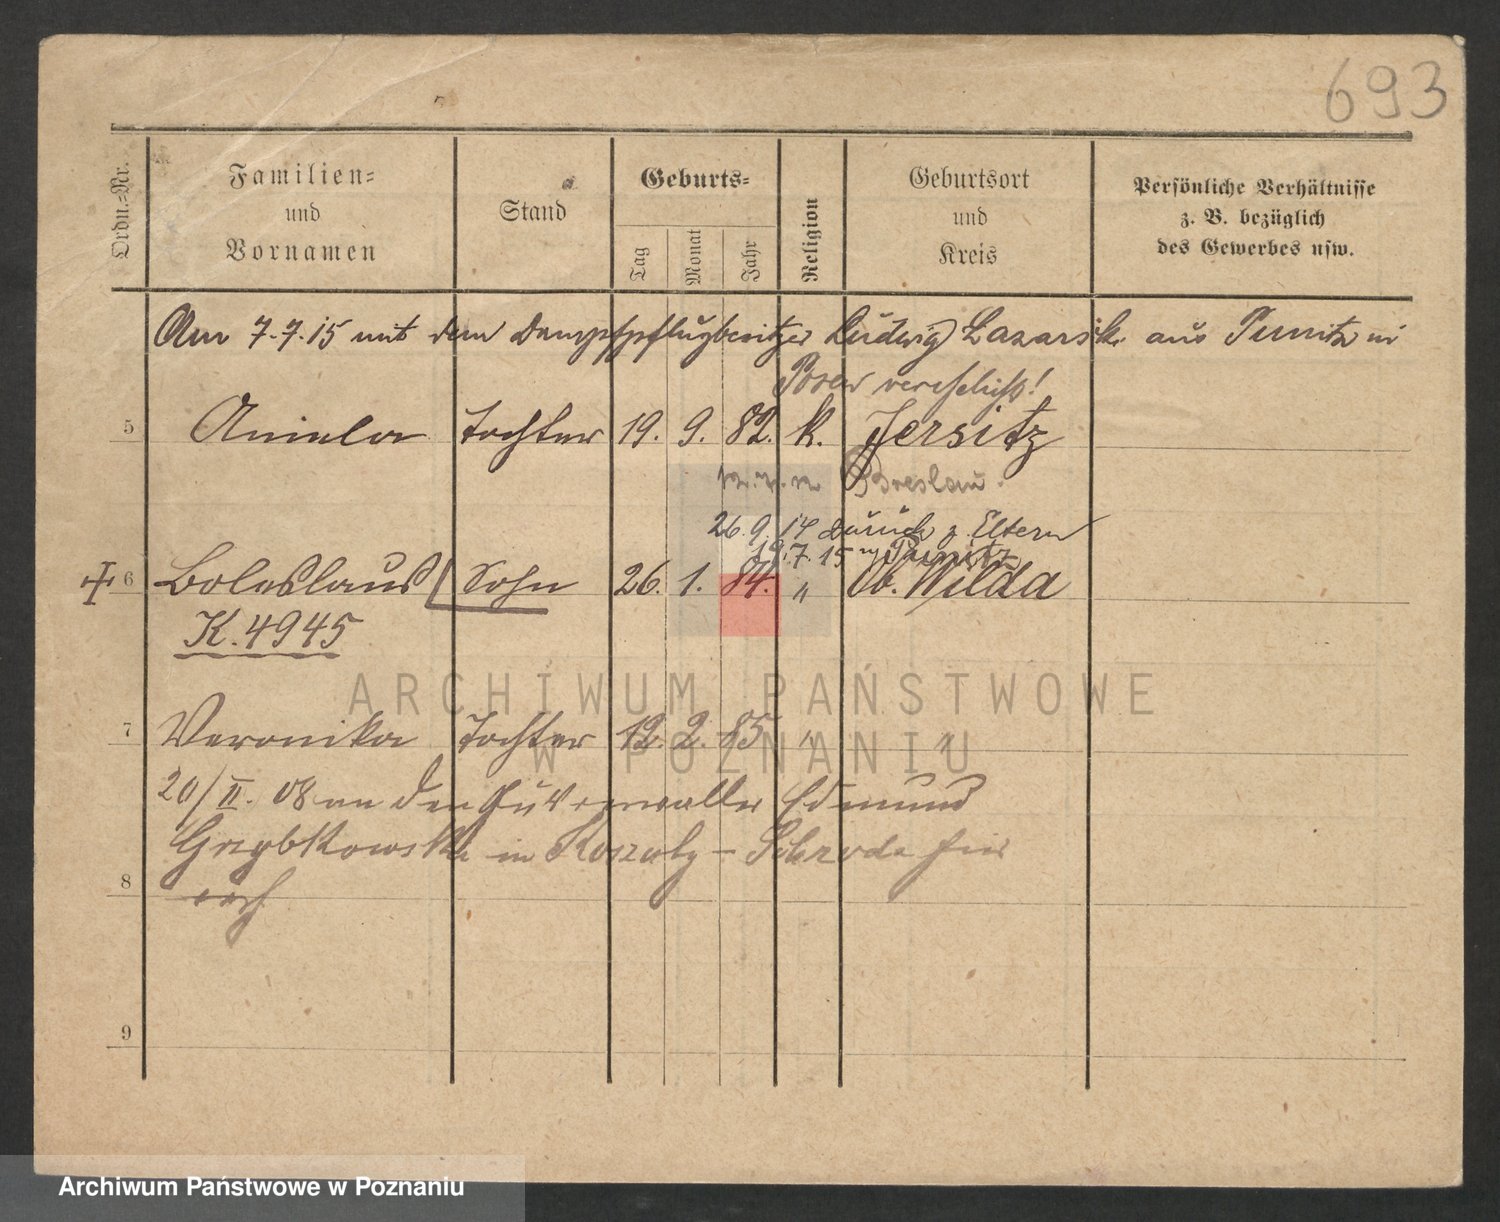 693
Ordn.=Nr.
Familien=
und
Vornamen
Stand
Geburts=
Tag
Monat
Jahr
Religion
Geburtsort
und
Kreis
Persönliche Verhältnisse
z. B. bezüglich
des Gewerbes usw.
Am 7.7.15 mit dem Dampfpflugbesitzer Ludwig Lazarski aus Punitz in
Posen verehelicht!
5 Aniela Tochter 19. 9. 82. k. Jersitz
Breslau.
26.9.14 zurück z. Eltern
19.7.15 n/Punitz
6 Boleslaus Sohn 26. 1. 84. " Ob. Wilda
K. 4945
7 Veronika Tochter 12. 2. 85 " "
20/II. 08 an den Gutsverwalter Edmund
Grzybkowski in – Schroda
8
9
ARCHIWUM PAŃSTWOWE
W POZNANIU
Archiwum Państwowe w Poznaniu